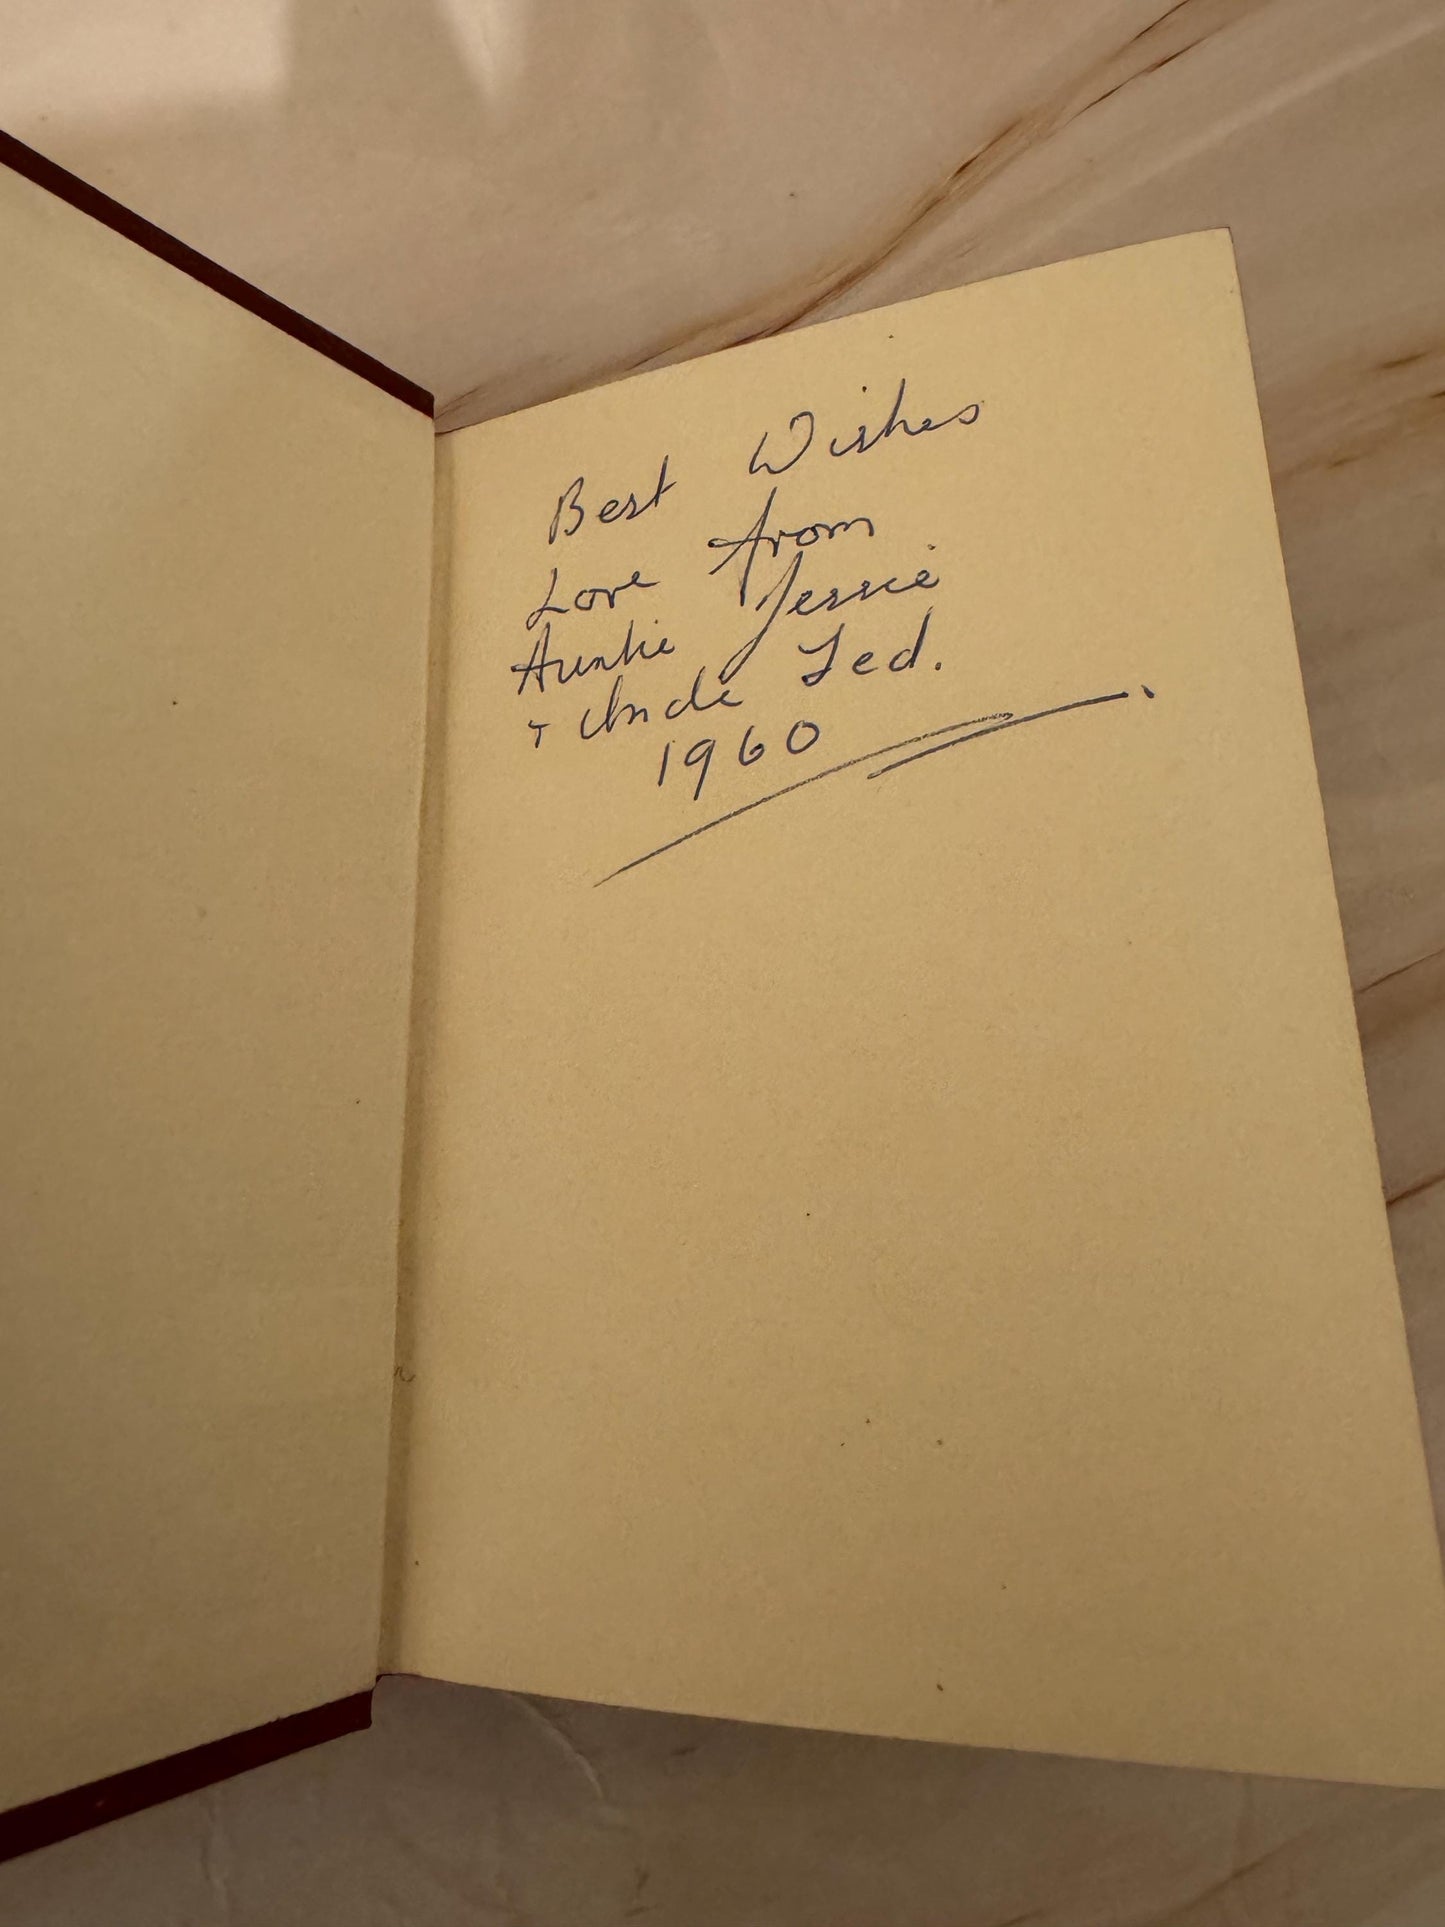 Best Wishes
Love from
Auntie Jessie
+ Uncle Ted.
1960